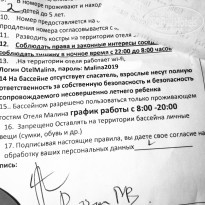 в номере проживают и находя
2 детей до 5 лет.
10. Номер предоставляется на
продления номера согласовывается с
11. Разводить костры на территории отеля
12. Соблюдать права и законные интересы сосед
соблюдать тишину в ночное время с 22:00 до 8:00 часов
13. На территории отеля работает wi-fi,
Логин OtelMalina, пароль: Malina2019
14 На бассейне отсутствует спасатель, взрослые несут полную
ответственность за собственную безопасность и безопасность
сопровождаемого несовершенно летнего ребенка
15.. Бассейном разрешено пользоваться только проживающим
гостям Отеля Малина график работы с 8:00 -20:00
16. Запрещено Оставлять на территории бассейна личные
вещи (сумки, обувь и др.)
17. Подписывая настоящие правила, вы даете свое согласие на
обработку ваших персональных данных
пись: